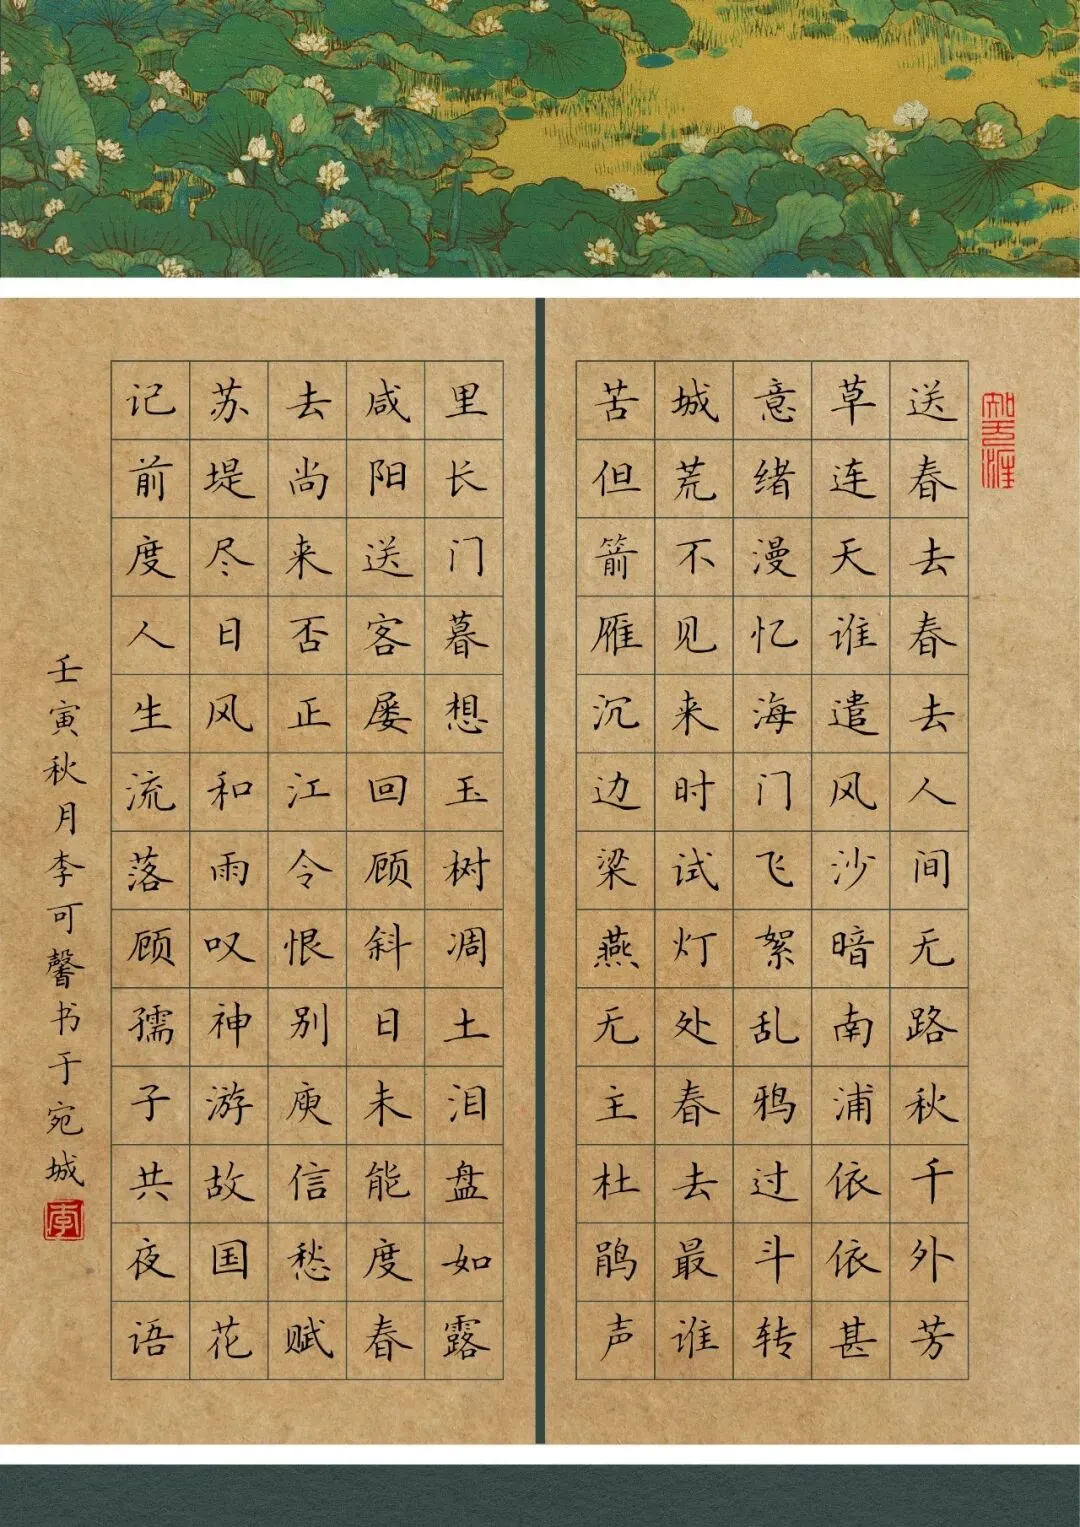 知无涯
送春去春去人间无路秋千外芳
草连天谁遣风沙暗南浦依依甚
意绪漫忆海门飞絮乱鸦过斗转
城荒不见来时试灯处春去最谁
苦但箭雁沉边梁燕无主杜鹃声
里长门暮想玉树凋土泪盘如露
咸阳送客屡回顾斜日未能度春
去尚来否正江令恨别庾信愁赋
苏堤尽日风和雨叹神游故国花
记前度人生流落顾孺子共夜语
壬寅秋月李可馨书于宛城
李